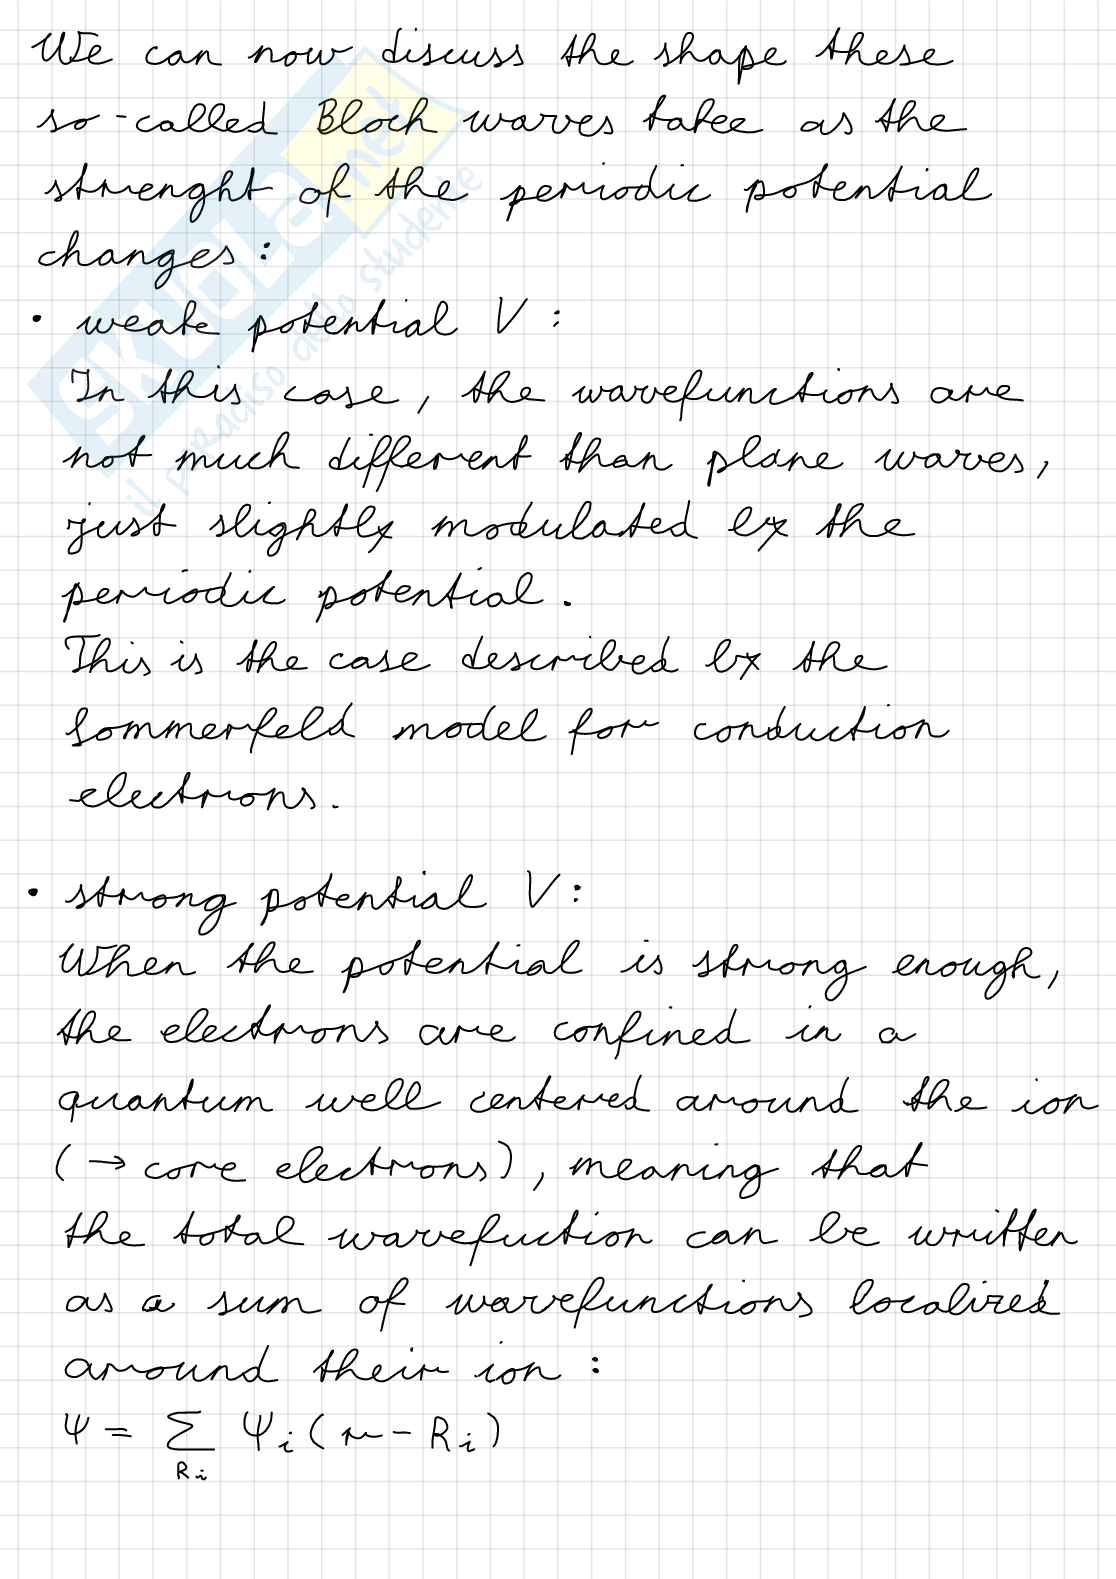 We can now discuss the shape these
so-called Bloch waves take as the
strenght of the periodic potential
changes:
• weak potential V:
In this case, the wavefunctions are
not much different than plane waves,
just slightly modulated by the
periodic potential.
This is the case described by the
Sommerfeld model for conduction
electrons.
• strong potential V:
When the potential is strong enough,
the electrons are confined in a
quantum well centered around the ion
(→ core electrons), meaning that
the total wavefuction can be written
as a sum of wavefunctions localized
around their ion:
Ψ = ∑ Ψi (r - Ri)
Ri
SKUOLA.net
il paradiso dello studente